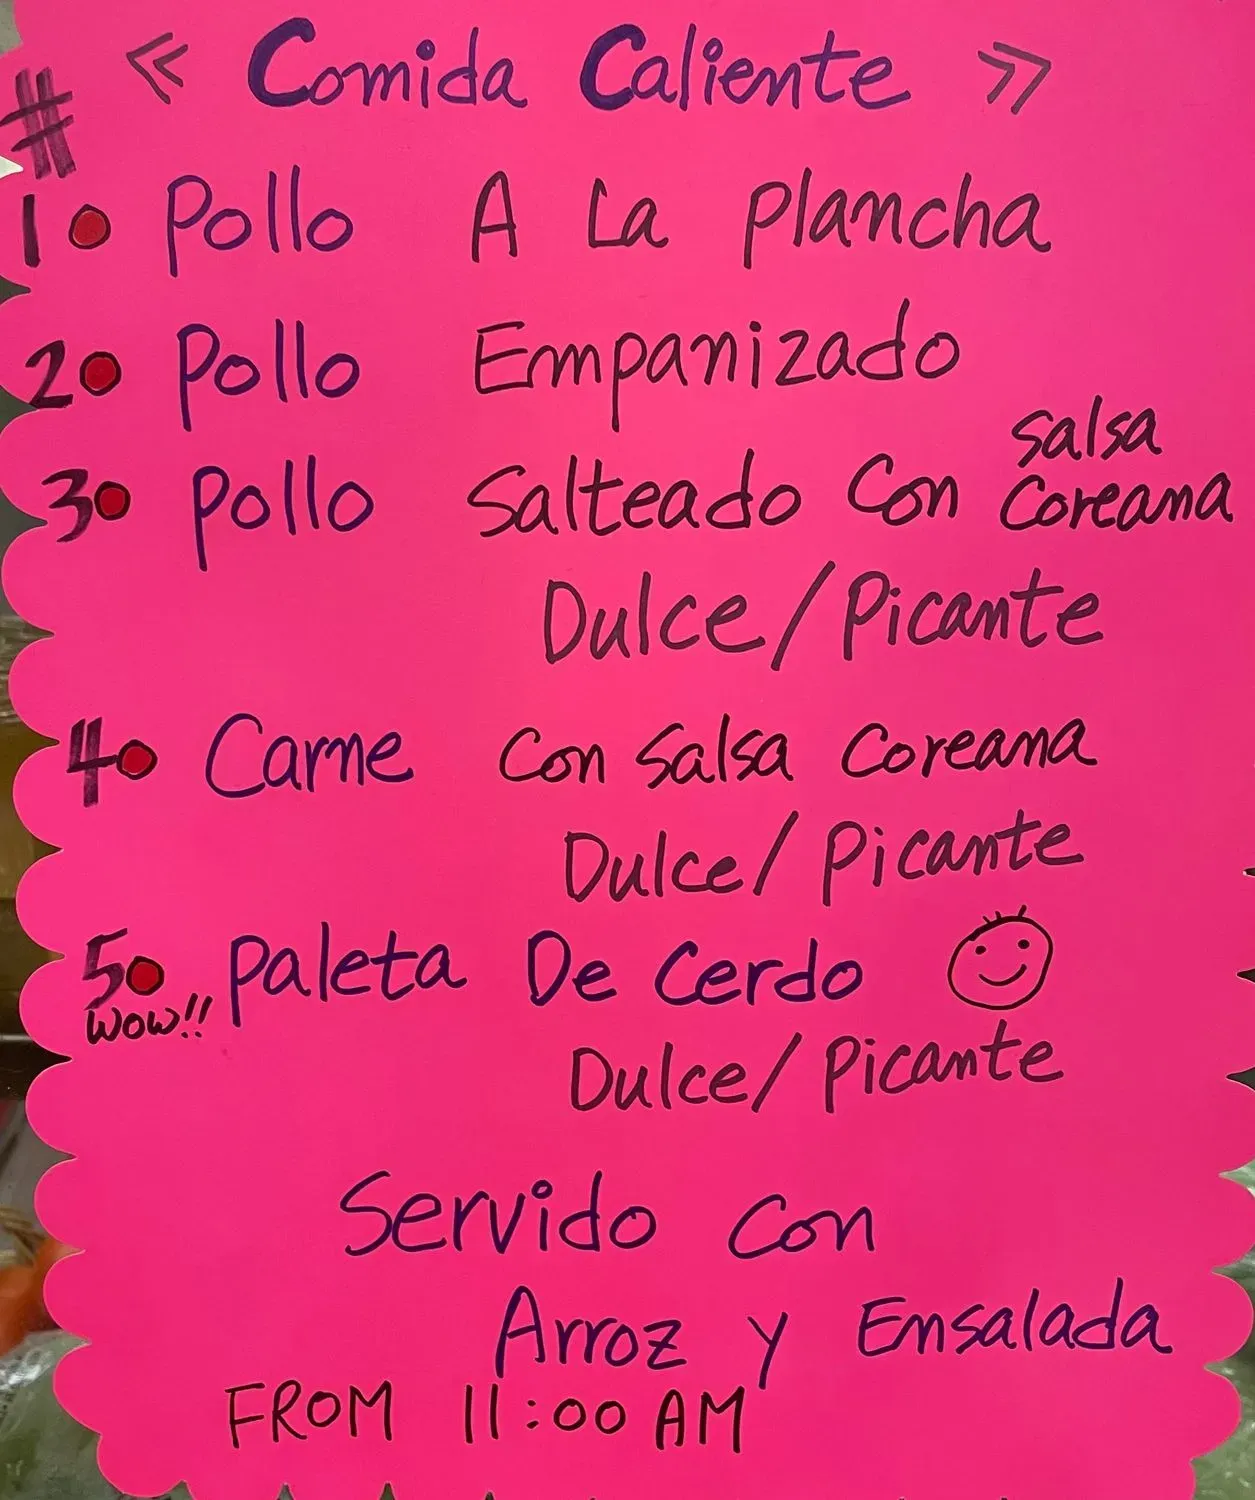 « Comida Caliente »
#
1• Pollo A La Plancha
2• Pollo Empanizado
3• Pollo Salteado Con Salsa Coreana
Dulce/Picante
4• Carne Con Salsa Coreana
Dulce/Picante
5• Paleta De Cerdo
WOW!!
Dulce/Picante
Servido Con
Arroz y Ensalada
FROM 11:00 AM